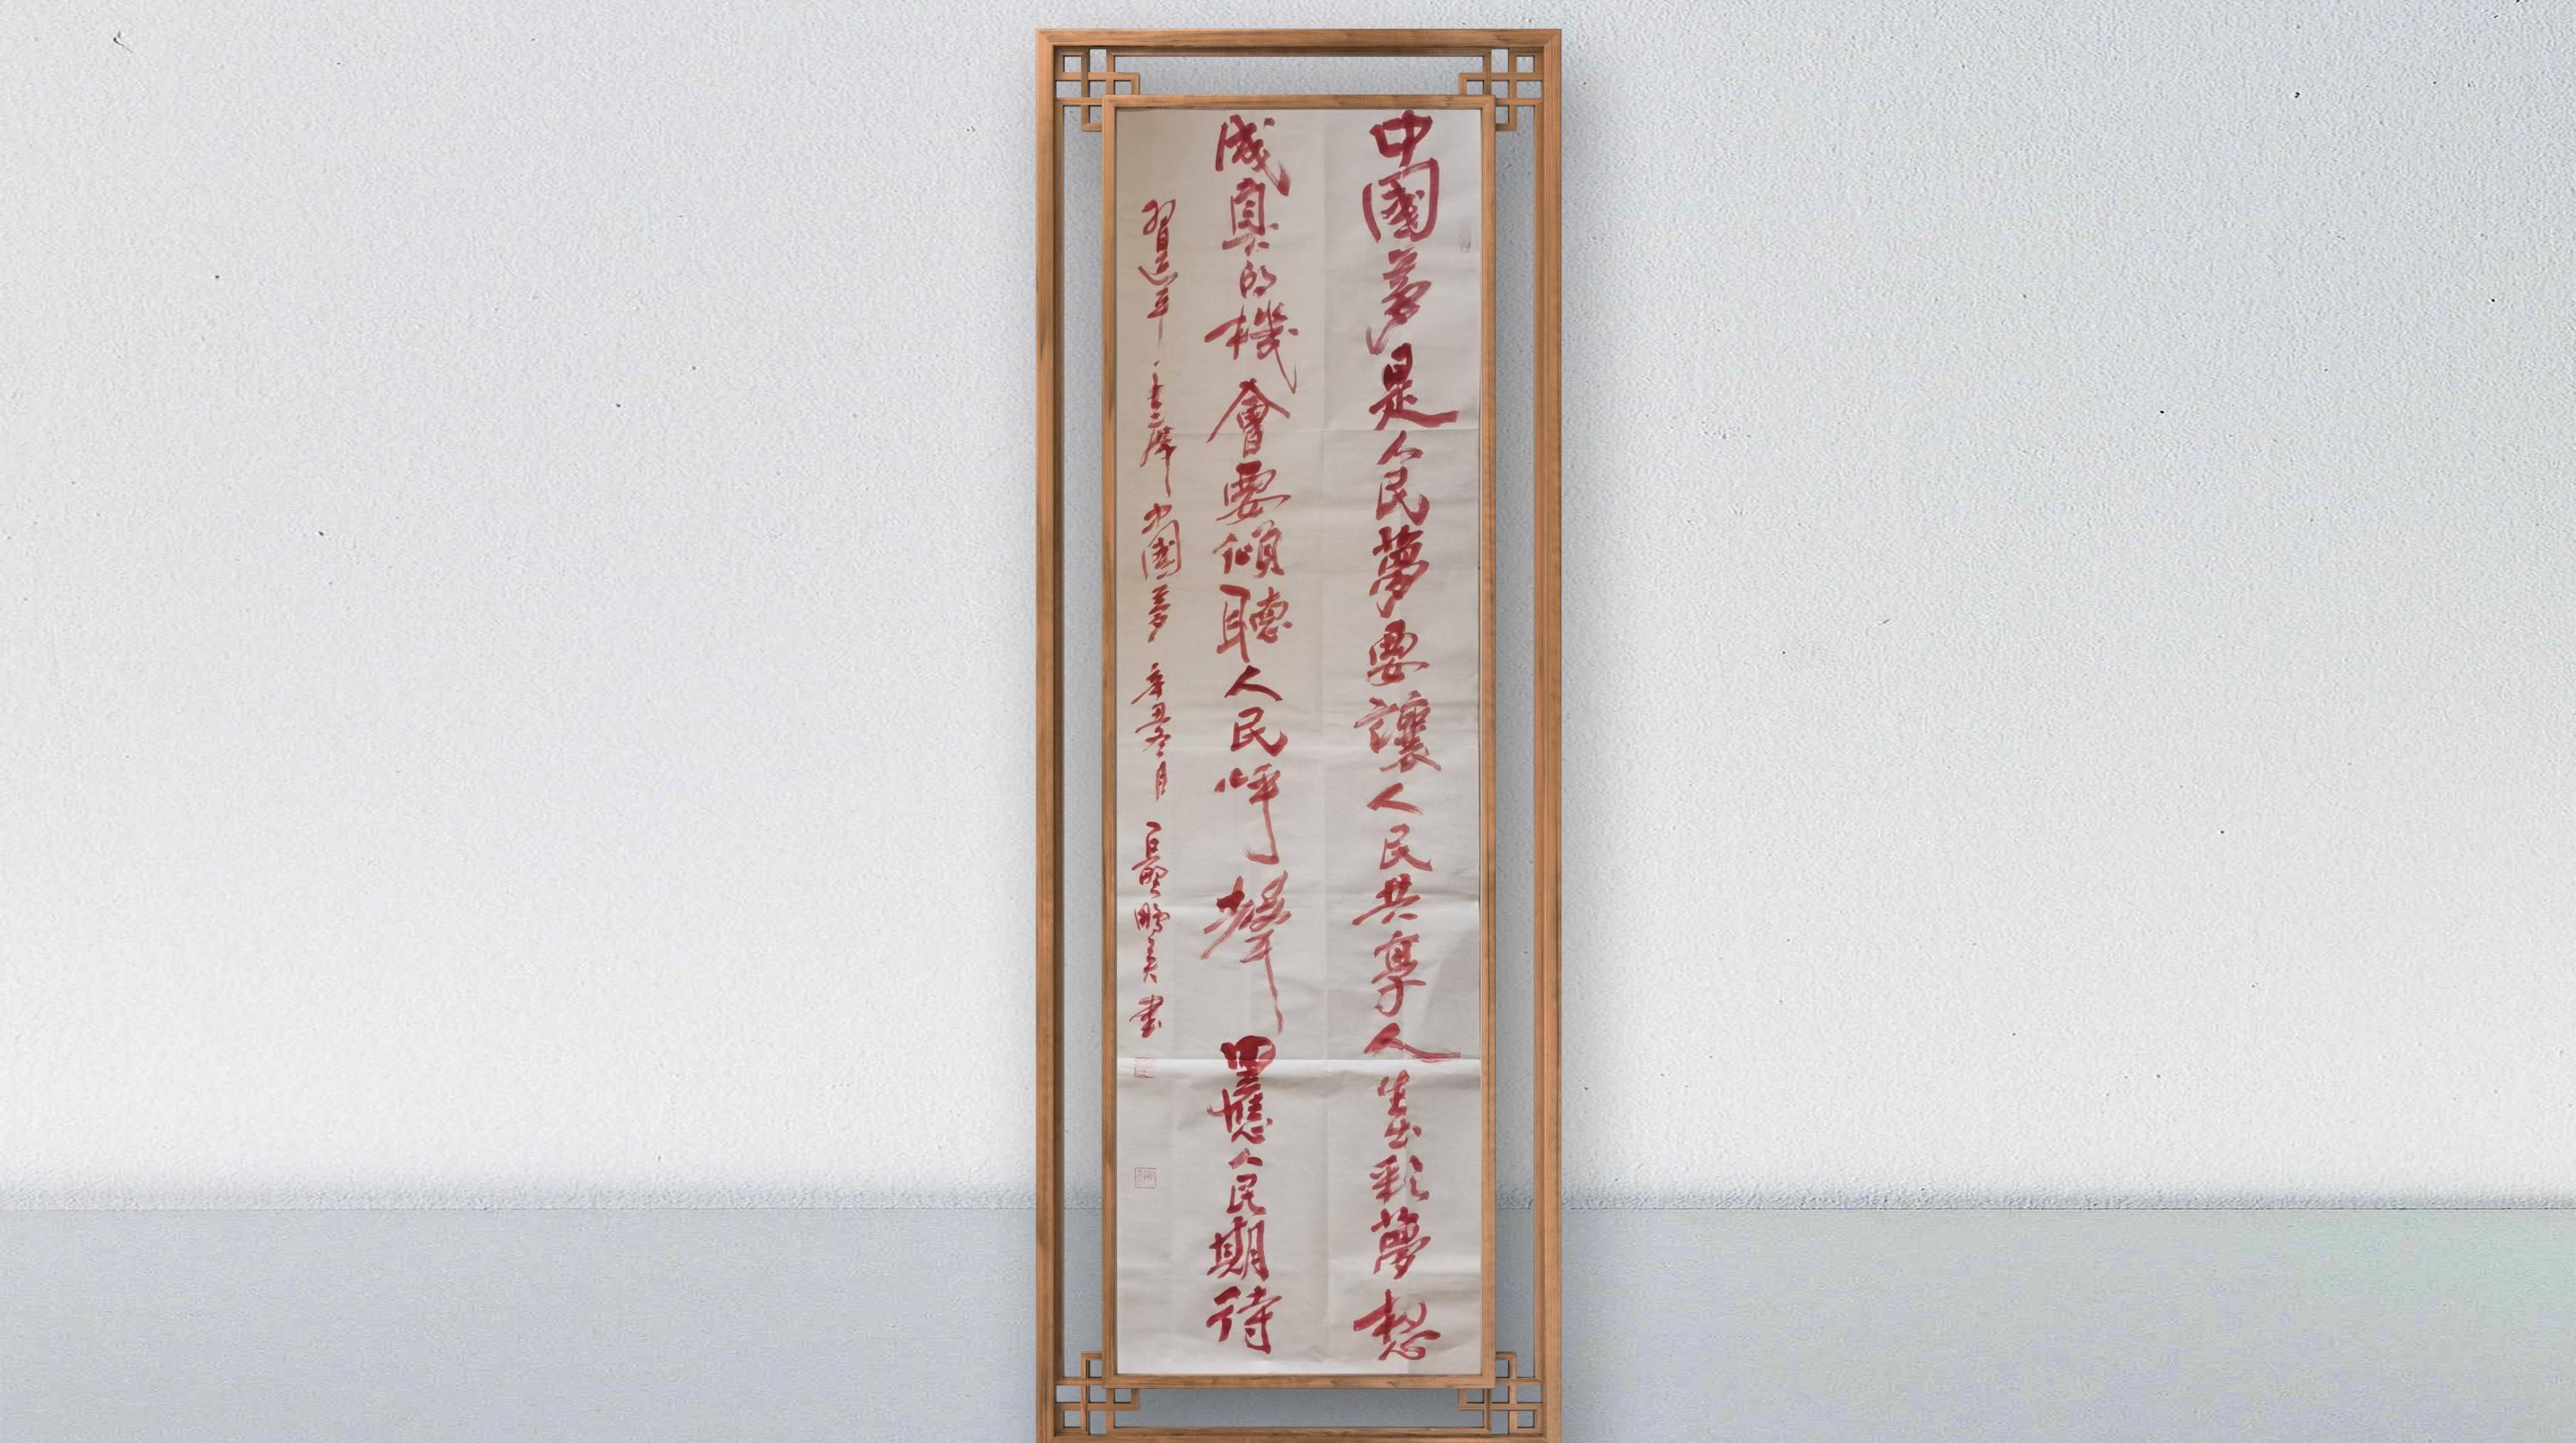 中國夢是人民夢要讓人民共享人生出彩夢想
成真的機會要傾聽人民呼聲回應人民期待
習近平主席中國夢辛丑冬月鵬書